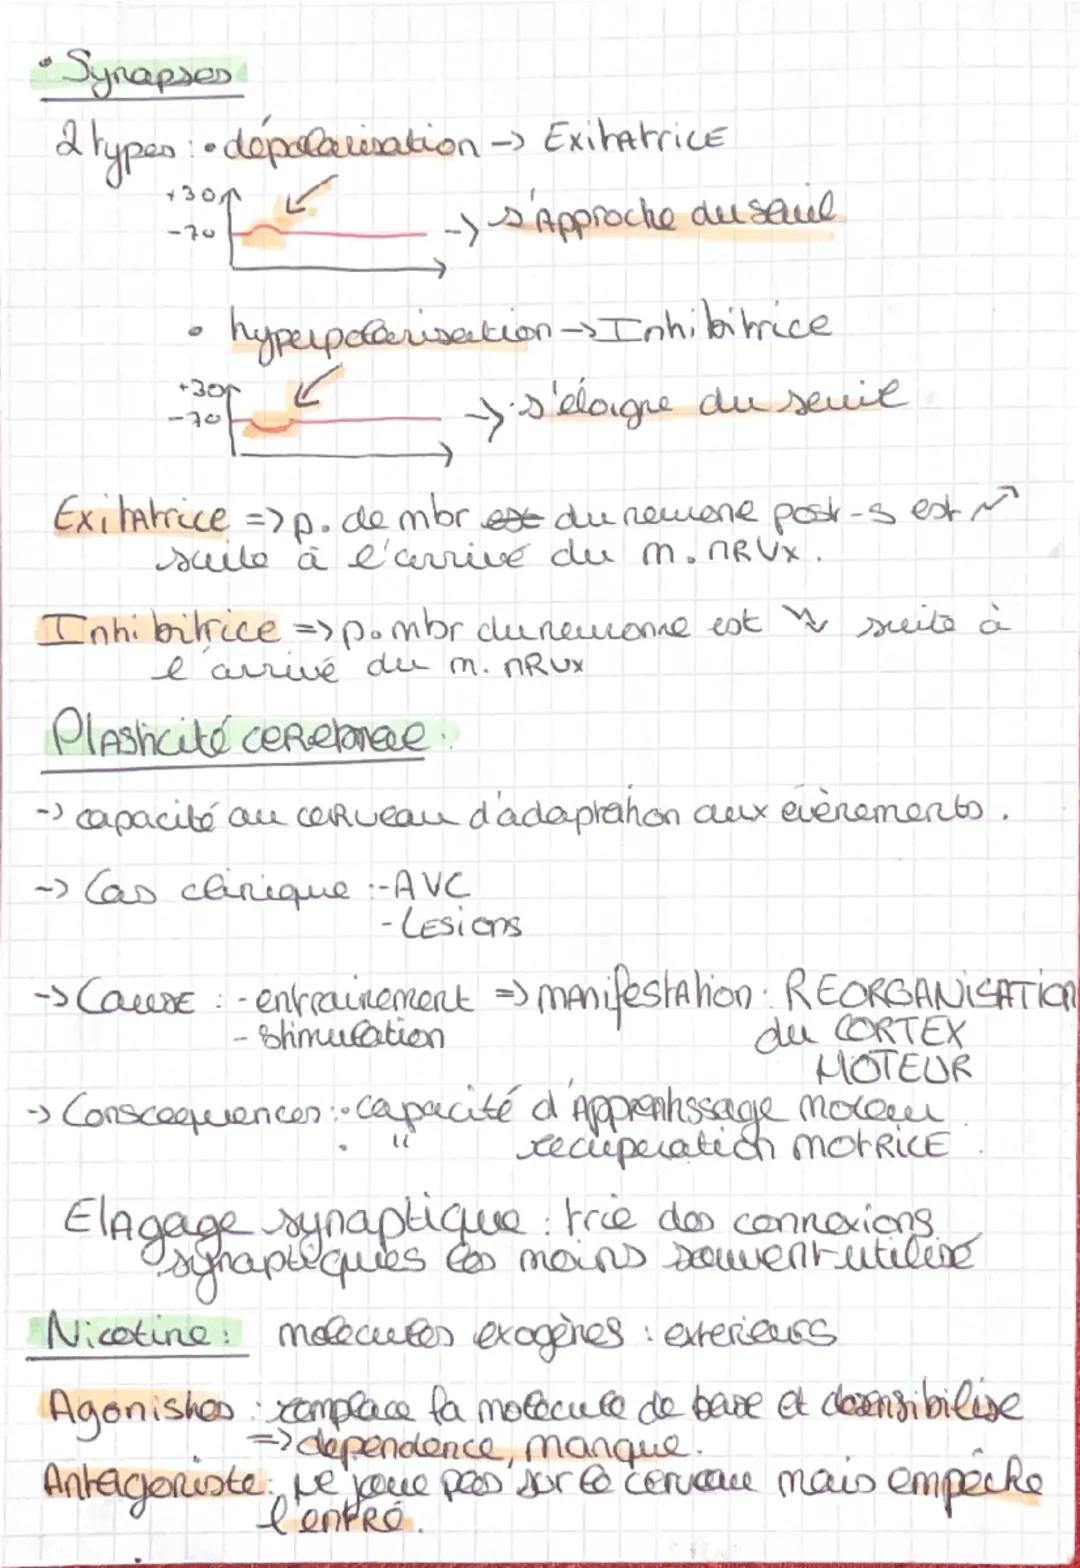 • Synapses
2 types : • dépolarisation -> Exitatrice
+30
-70
-> s'Approche du seuil
• hyperpolarisation -> Inhibitrice
+30
-70
-> s'éloigne du seuil
Exitatrice => p. de mbr est du neurone post-s est ↗
suite à l'arrivé du m. nRVx.
Inhibitrice => p. mbr du neuronne est ↘ suite à
l'arrivé du m. nRVx
Plasticité cerebrale :
-> capacité au cerveau d'adaptation aux evènements.
-> Cas clinique : - AVC
- Lesions
-> Cause : - entrainement => manifestation : REORGANISATION
- stimulation du CORTEX
MOTEUR
-> Consequences : • capacité d'Apprentissage moteur
• " recuperation motrice.
Elagage synaptique : trie des connexions
synaptiques les moins souvent utilisé
Nicotine : molécules exogènes : exterieurs
Agonistes : remplace la molécule de base et desensibilise
=> dependence, manque.
Antagoniste : Ne joue pas sur le cerveau mais empêche
l'entré.